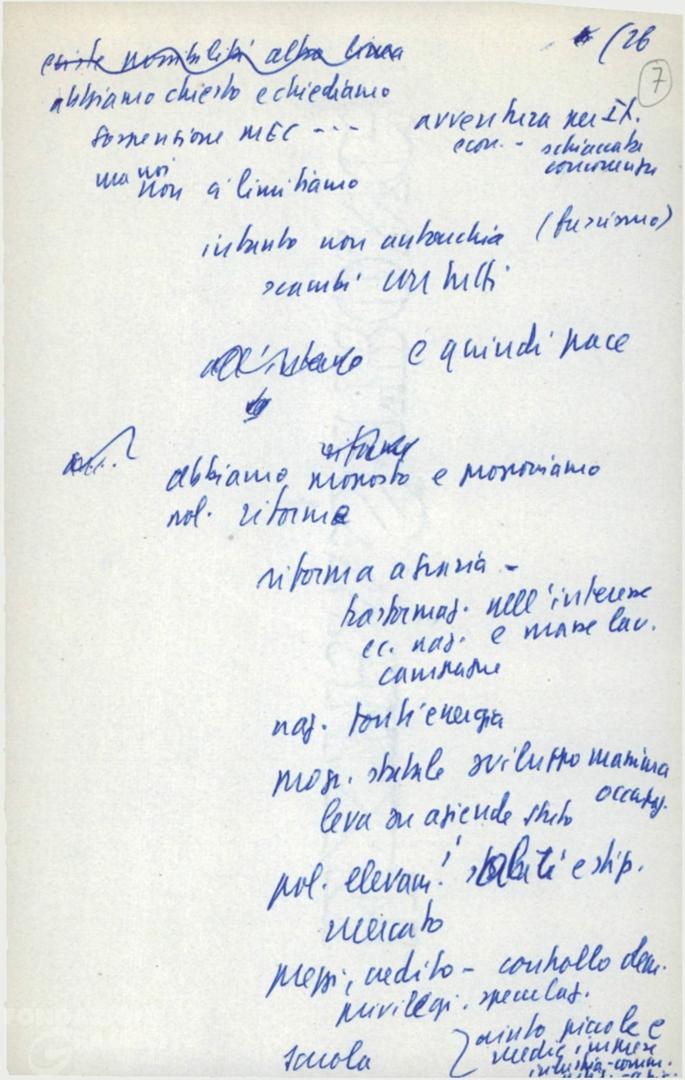 (26
7
esiste possibilità altra linea
abbiamo chiesto e chiediamo
sospensione MEC ---
avventura per IT.
econ. - schiacciata
concorrenza
ma noi
non ci limitiamo
intanto non autarchia (fascismo)
scambi con tutti
all'interno è quindi pace
riforme
abbiamo proposto e proponiamo
pol. riforma
riforma agraria -
trasformaz. nell'interesse
ec. naz. e masse lav.
campagne
naz. fonti energia
progr. statale sviluppo massima
occupaz.
leva su aziende stato
pol. elevam. salari e stip.
mercato
prezzi, credito - controllo dem.
privilegi. speculaz.
scuola
aiuto piccole e
medie imprese
industria-comm.
FONDAZIONE